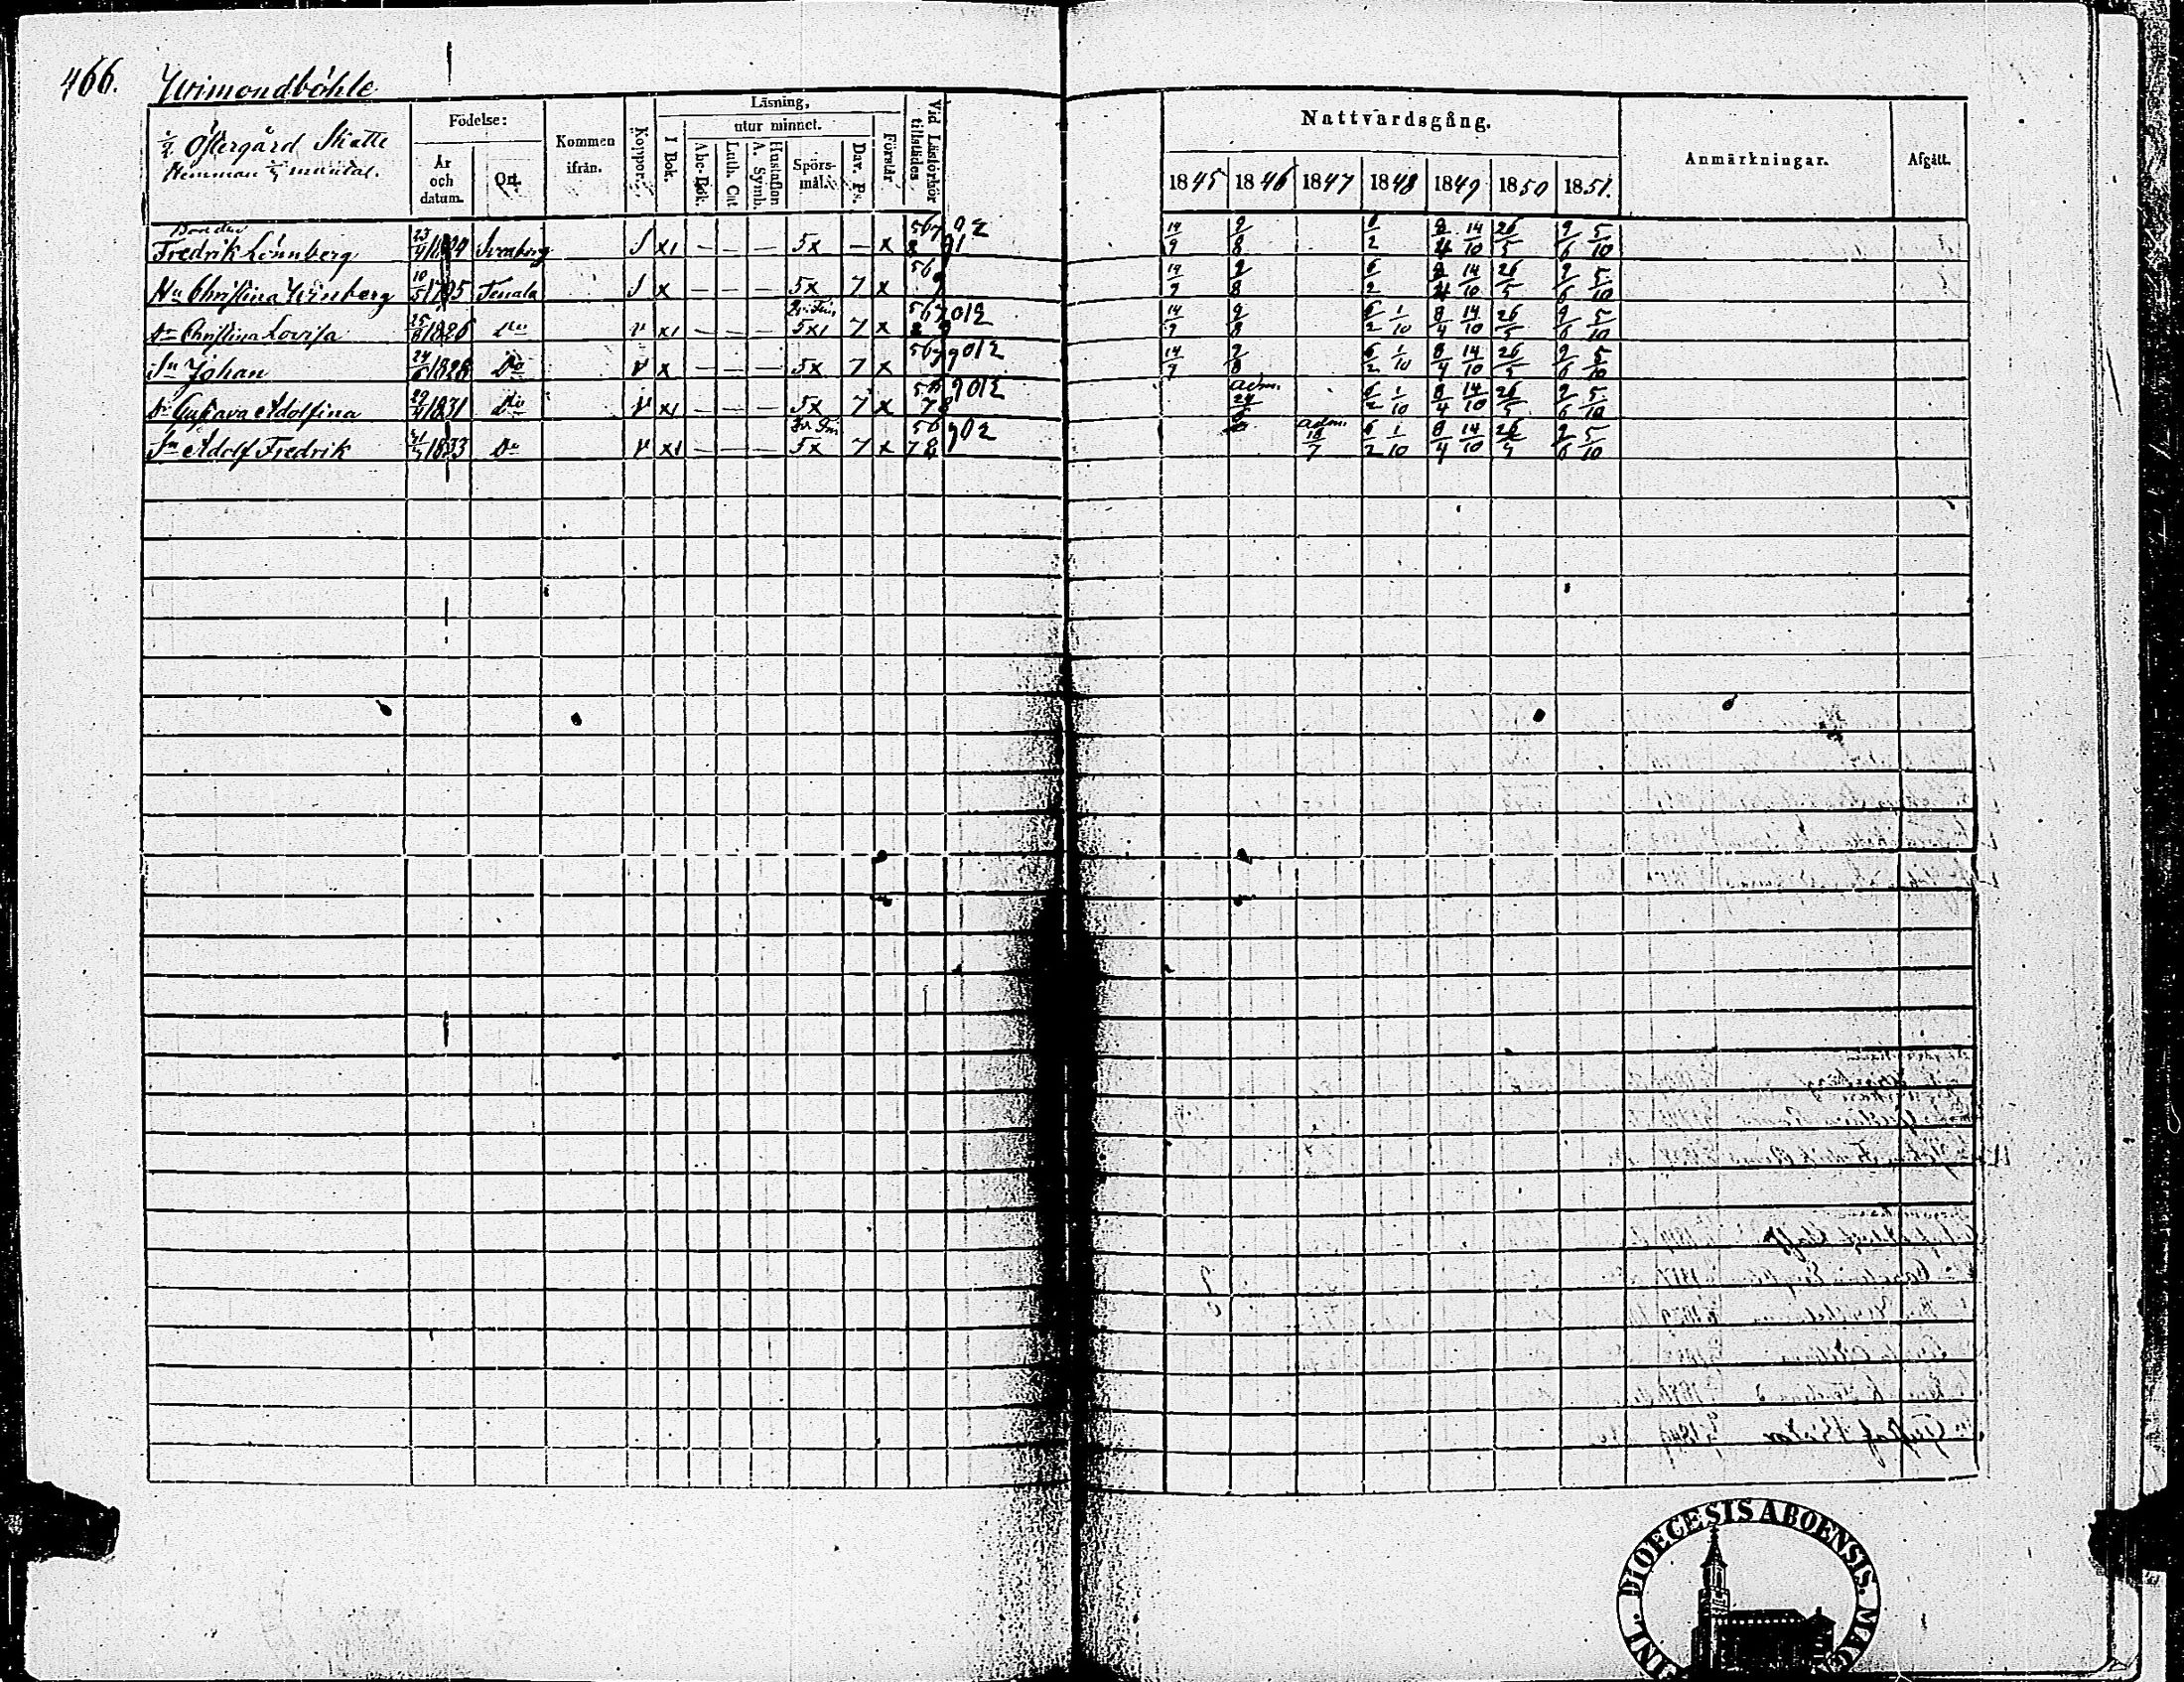 466.
Grimondböhle
Östergård Skatte
Hemman mantal.
Födelse:
År och datum.
Ort.
Kommen ifrån.
Koppor.
Läsning,
I Bok.
utur minnet.
Abc-Bok.
Luth. Cat
A. Symb. Hustaflon
Spörs-mål.
Dav. Ps.
Förstår
Vid Läsförhör tillstädes
Nattvardsgång.
1845 1846 1847 1848 1849 1850 1851.
Anmärkningar.
Afgått.
Bonden
Fredrik Lönnberg 23/4 Sveaborg S x1 — — — 5x — x 14/9 9/8 6/2 8/4 14/10 26/5 9/6 5/10
Hu Christina 10/5 1795 Tenala S x — — — 5x 7 x 14/9 9/8 6/2 8/4 14/10 26/5 9/6 5/10
Dr Christina Lovisa 25/8 1826 Do v x1 — — — 5x1 7 x 14/9 9/8 6/2 1/10 8/4 14/10 26/5 9/6 5/10
Sn Johan 24/6 1828 Do v x — — — 5x 7 x 14/9 9/8 6/2 1/10 8/4 14/10 26/5 9/6 5/10
Dr Gustava Adolfina 29/4 1831 Do v x1 — — — 5x 7 x adm. 24/6 6/2 1/10 8/4 14/10 26/5 9/6 5/10
Sn Adolf Fredrik 1833 Do v x1 — — — 5x 7 x adm. 18/7 6/2 1/10 8/4 14/10 26/5 9/6 5/10
FINL. DIOECESIS ABOENSIS. MAG